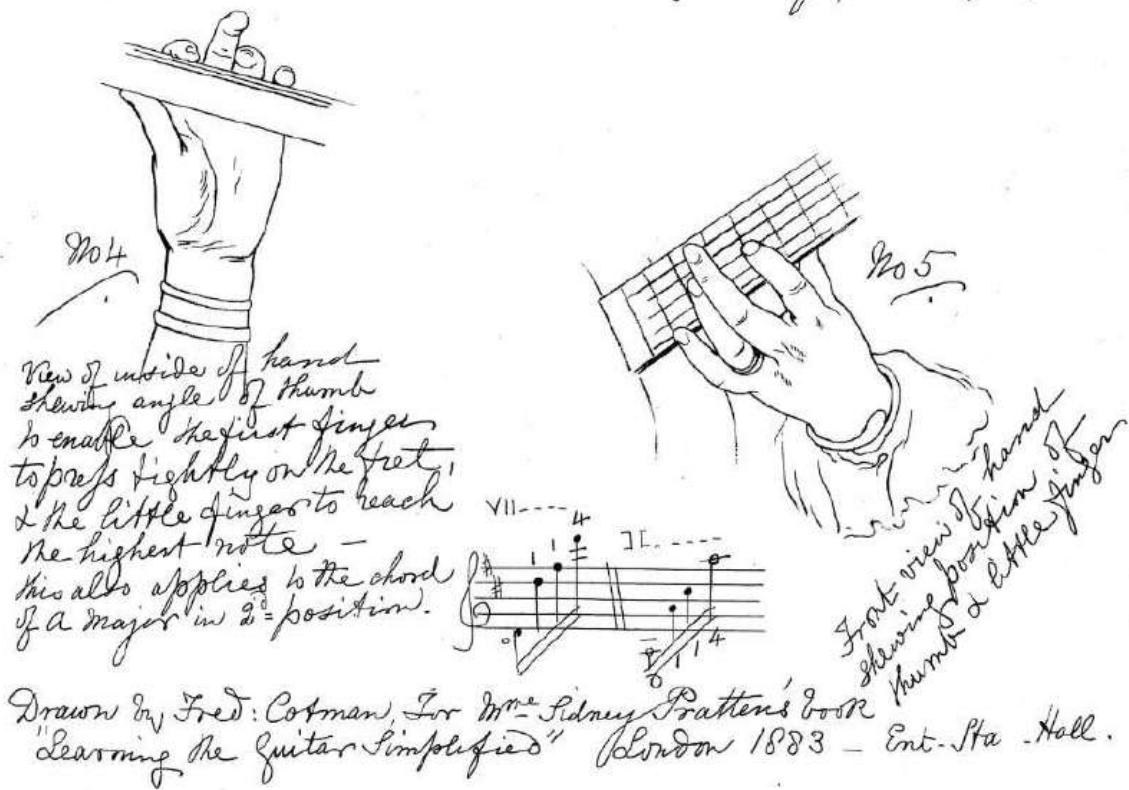 No 4
View of inside of hand
shewing angle of thumb
to enable the first finger
to press tightly on the fret,
& the little finger to reach
the highest note —
this also applies to the chord
of A major in 2d= position.
No 5
Front view of hand
shewing position of
thumb & little finger
VII-----
4
1 1
II.------
o
1 1 4
o
Drawn by Fred: Cotman, For Mme Sidney Pratten's book
"Learning the Guitar Simplified" London 1883 — Ent. Sta. Hall.